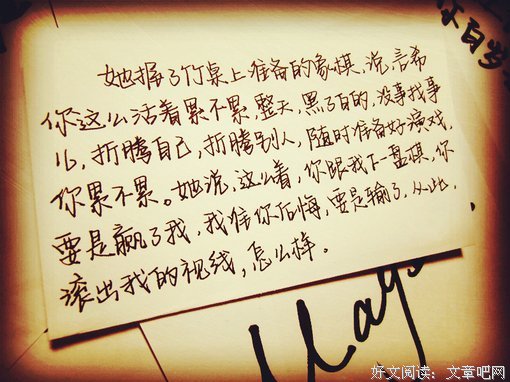 她握了竹桌上准备的象棋，说，言希
你这么活着累不累，整天，黑了白的，没事找事
儿，折腾自己，折腾别人，随时准备好演戏，
你累不累。她说，这么着，你跟我下一盘棋，你
要是赢了我，我准你后悔，要是输了，从此，
滚出我的视线，怎么样。
你百岁
好文阅读：文章吧网